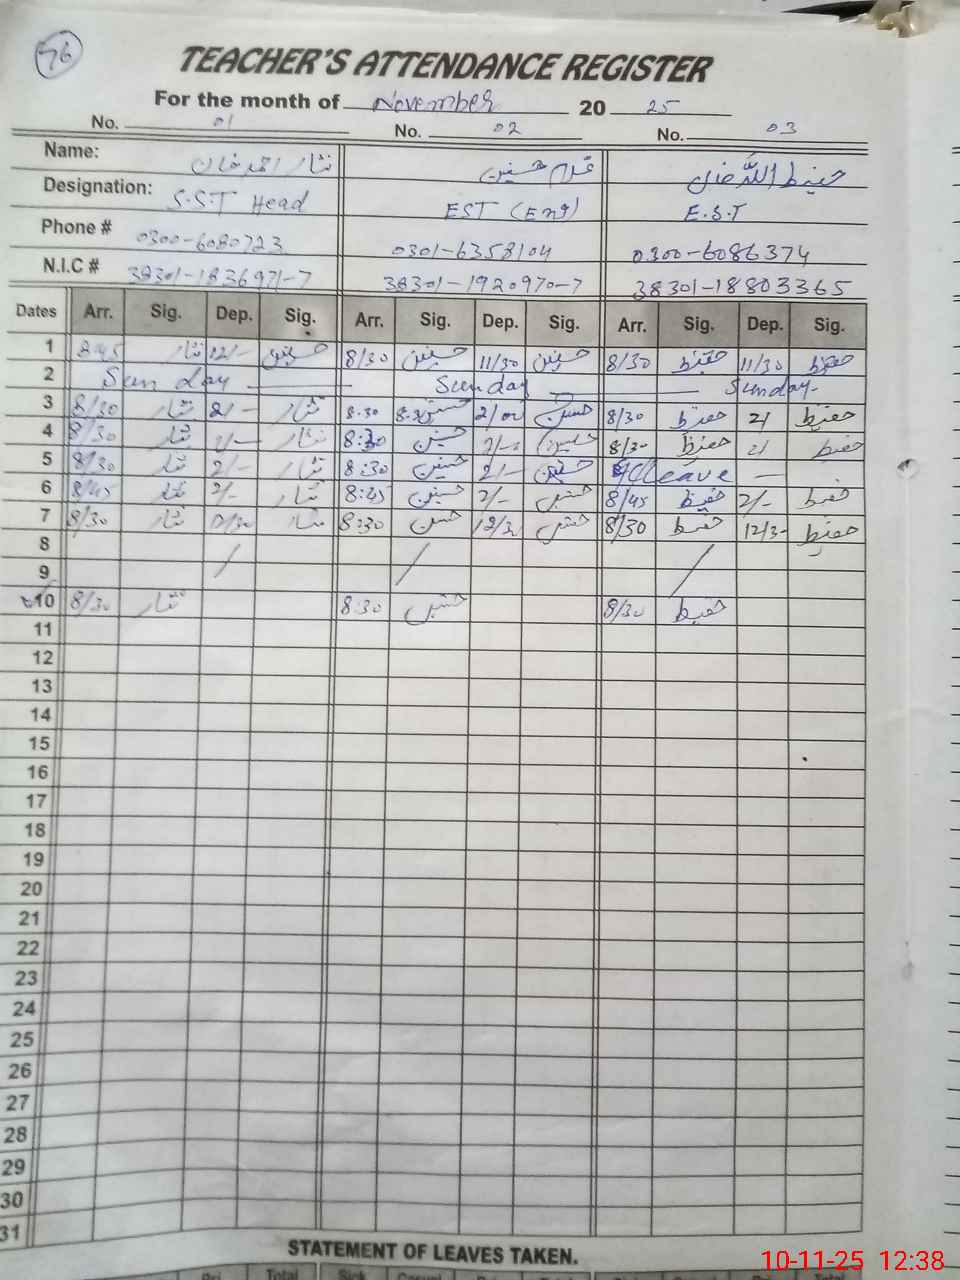 76
TEACHER'S ATTENDANCE REGISTER
For the month of November 2025
No. 01 No. 02 No. 03
Name: نثار احمد خان غلام حسین حفیظ اللہ خان
Designation: S.S.T Head EST (Eng) E.S.T
Phone # 0300-6080723 0301-6358104 0300-6086374
N.I.C # 38301-1836971-7 38301-1920970-7 38301-18803365
Dates Arr. Sig. Dep. Sig. Arr. Sig. Dep. Sig. Arr. Sig. Dep. Sig.
1 8/45 نثار 12/- 8/30 حسین 11/30 حسین 8/30 حفیظ 11/30 حفیظ
2 Sunday Sunday Sunday
3 8/30 نثار 2/- نثار 8:30 حسین 2/00 حسین 8/30 حفیظ 2/ حفیظ
4 8/30 نثار 2/- نثار 8:30 حسین 2/- حسین 8/30 حفیظ 2/ حفیظ
5 8/30 نثار 2/- نثار 8:30 حسین 2/- حسین leave —
6 8/45 نثار 2/- نثار 8:45 حسین 2/- حسین 8/45 حفیظ 2/- حفیظ
7 8/30 نثار 12/30 نثار 8:30 حسین 12/3 حسین 8/30 حفیظ 12/30 حفیظ
8 / / /
9
10 8/30 نثار 8:30 حسین 8/30 حفیظ
11
12
13
14
15
16
17
18
19
20
21
22
23
24
25
26
27
28
29
30
31
STATEMENT OF LEAVES TAKEN.
Total Sick Casual
10-11-25 12:38